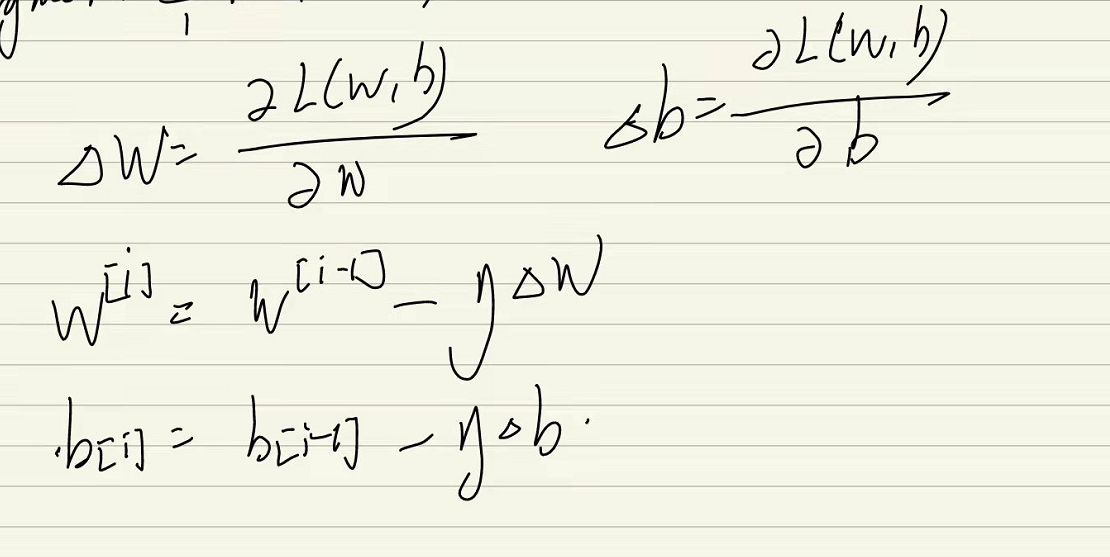 ΔW = ∂L(w,b) / ∂w    Δb = ∂L(w,b) / ∂b
w^[i] = w^[i-1] - ηΔW
b[i] = b[i-1] - ηΔb